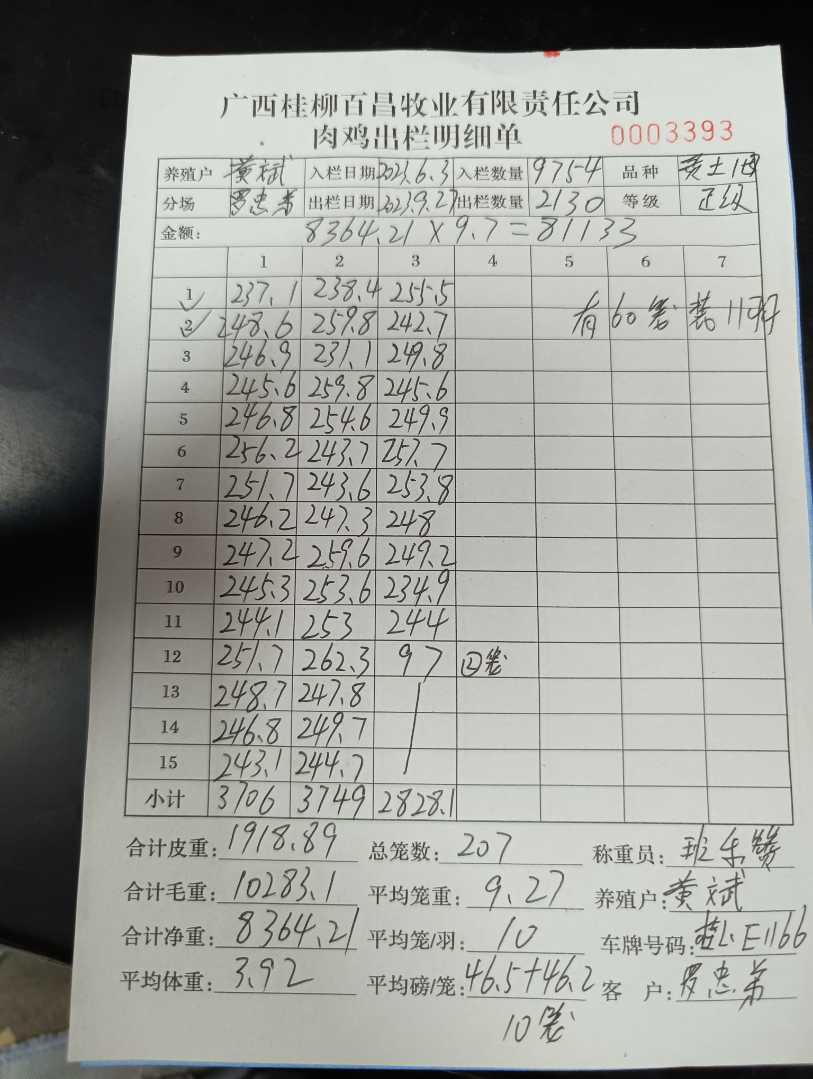 广西桂柳百昌牧业有限责任公司
肉鸡出栏明细单 0003393
养殖户 黄斌 入栏日期 2023.6.3 入栏数量 9754 品种 黄土1
分场 罗忠弟 出栏日期 2023.9.27 出栏数量 2130 等级 正级
金额: 8364.21×9.7=81133
1 2 3 4 5 6 7
1 237.1 238.4 255.5
2 248.6 259.8 242.7 有60笼装11羽
3 246.9 231.1 249.8
4 245.6 259.8 245.6
5 246.8 254.6 249.9
6 256.2 243.7 257.7
7 251.7 243.6 253.8
8 246.2 247.3 248
9 247.2 259.6 249.2
10 245.3 253.6 234.9
11 244.1 253 244
12 251.7 262.3 97 ②笼
13 248.7 247.8
14 246.8 249.7
15 243.1 244.7
小计 3706 3749 2828.1
合计皮重: 1918.89 总笼数: 207 称重员: 班乐
合计毛重: 10283.1 平均笼重: 9.27 养殖户: 黄斌
合计净重: 8364.21 平均笼/羽: 10 车牌号码: E1166
平均体重: 3.92 平均磅/笼: 46.5+46.2 客户: 罗忠弟
10笼